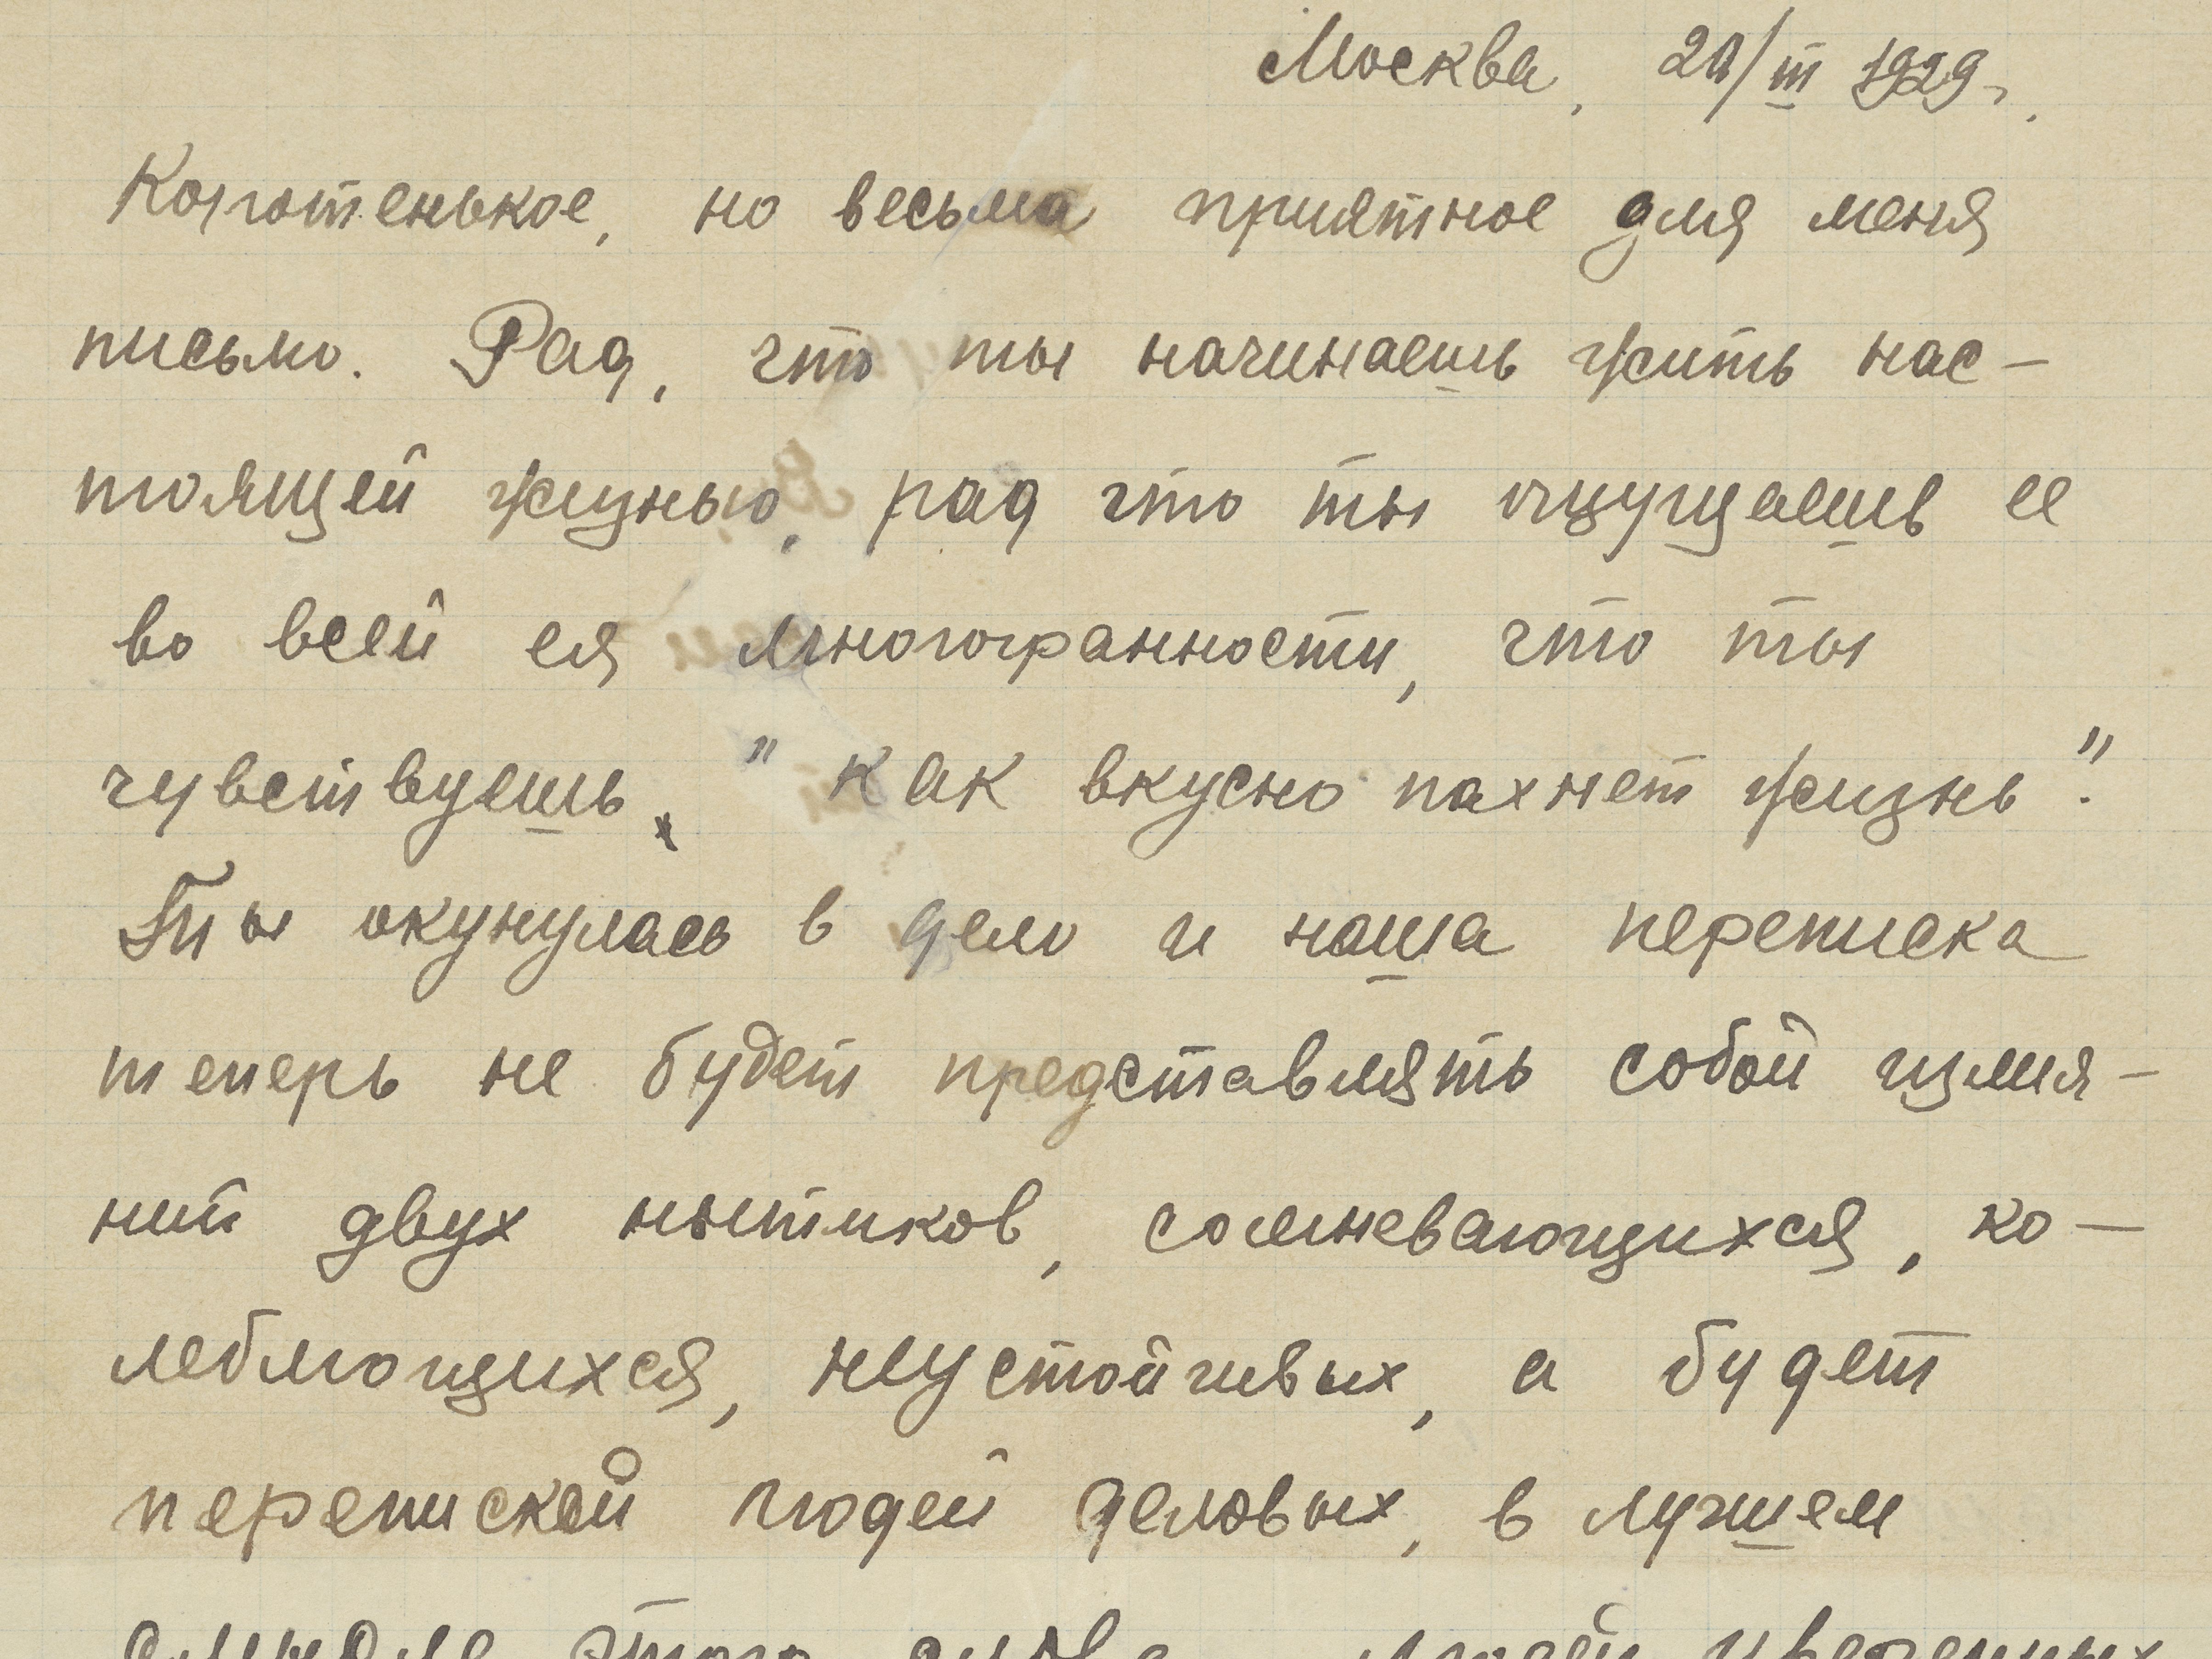 Москва, 21/III 1929г.
Коротенькое, но весьма приятное для меня
письмо. Рад, что ты начинаешь жить нас-
тоящей жизнью, рад что ты ощущаешь ее
во всей ея многогранности, что ты
чувствуешь, "как вкусно пахнет жизнь".
Ты окунулась в дело и наша переписка
теперь не будет представлять собой излия-
ний двух нытиков, сомневающихся, ко-
леблющихся, неустойчивых, а будет
перепиской людей деловых, в лучшем
смысле этого слова, людей уверенных